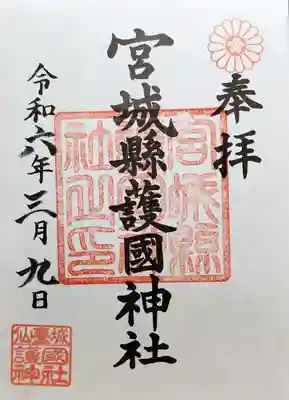 奉拝
宮城縣護國神社
令和六年三月九日
宮城縣護國神社之印
仙臺城護國神社